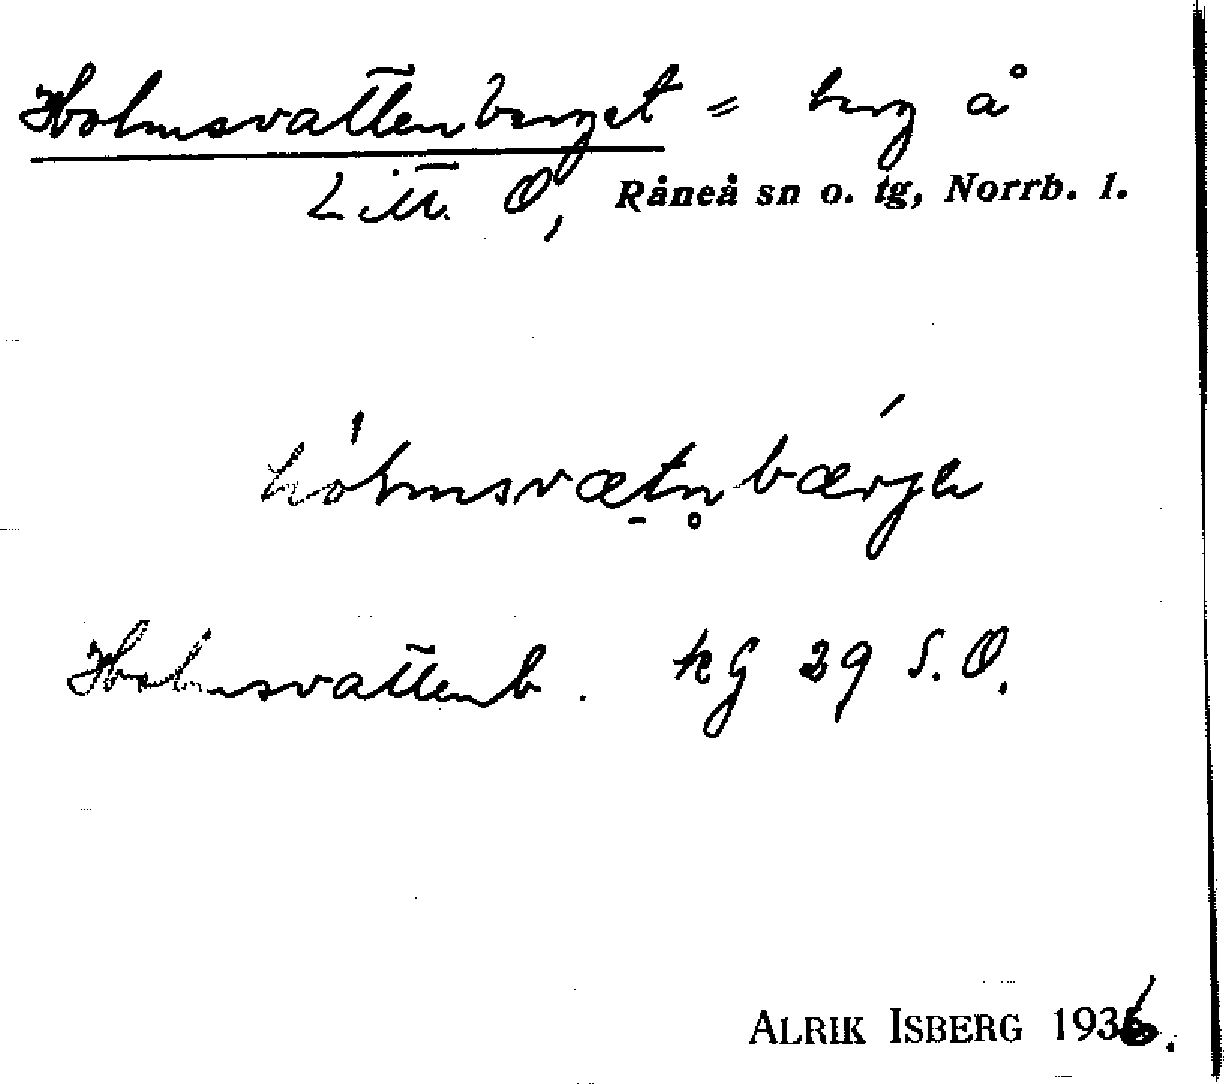 Holmsvattenberget = berg å
Litt. O, Råneå sn o. tg, Norrb. l.
hólmsvætn̥bærje
Holmsvattenb. kg 29 S.O.
ALRIK ISBERG 1936.